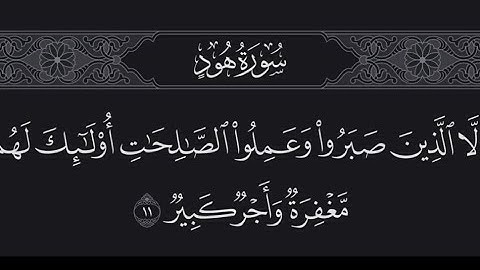 سُورَةُ هُودٍ
لَّا ٱلَّذِينَ صَبَرُواْ وَعَمِلُواْ ٱلصَّـٰلِحَـٰتِ أُوْلَـٰٓئِكَ لَهُم
مَّغْفِرَةٌ وَأَجْرٌ كَبِيرٌ ١١